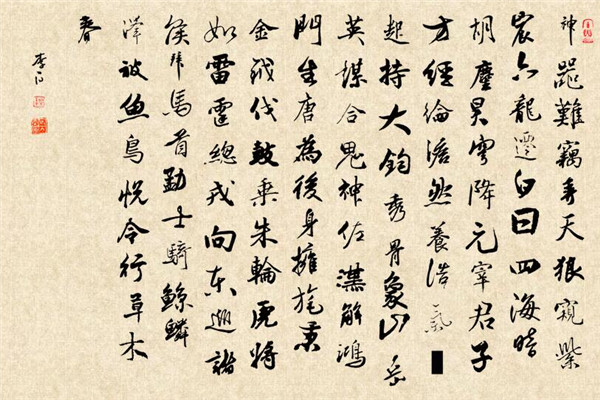 神器難竊弄天狼窺紫
宸六龍遷白日四海暗
胡塵昊穹降元宰君子
方經綸澹然養浩氣
起持大鈞秀骨象山岳
英謀合鬼神佐漢解鴻
門生唐為後身擁旄秉
金鉞伐鼓乘朱輪虎將
如雷霆總戎向東巡諸
侯拜馬首勐士騎鯨鱗
澤被魚鳥悅令行草木
春
李